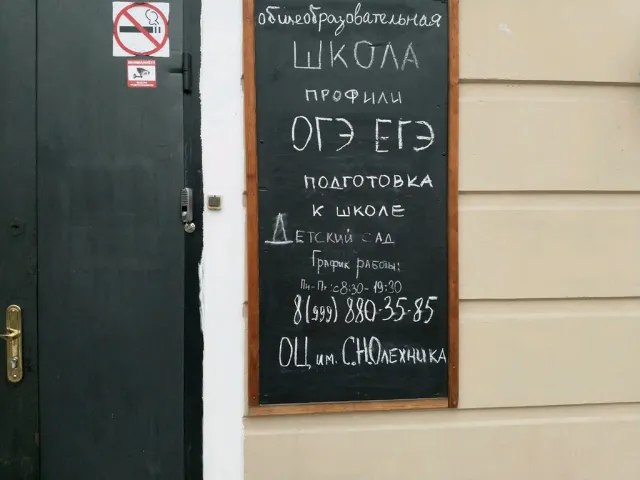 общеобразовательная
ШКОЛА
ПРОФИЛИ
ОГЭ ЕГЭ
ПОДГОТОВКА
К ШКОЛЕ
ДЕТСКИЙ САД
График работы:
Пн-Пт: с 8:30- 19:30
8(999) 880-35-85
ОЦ им. С.НОЛЕХНИКА